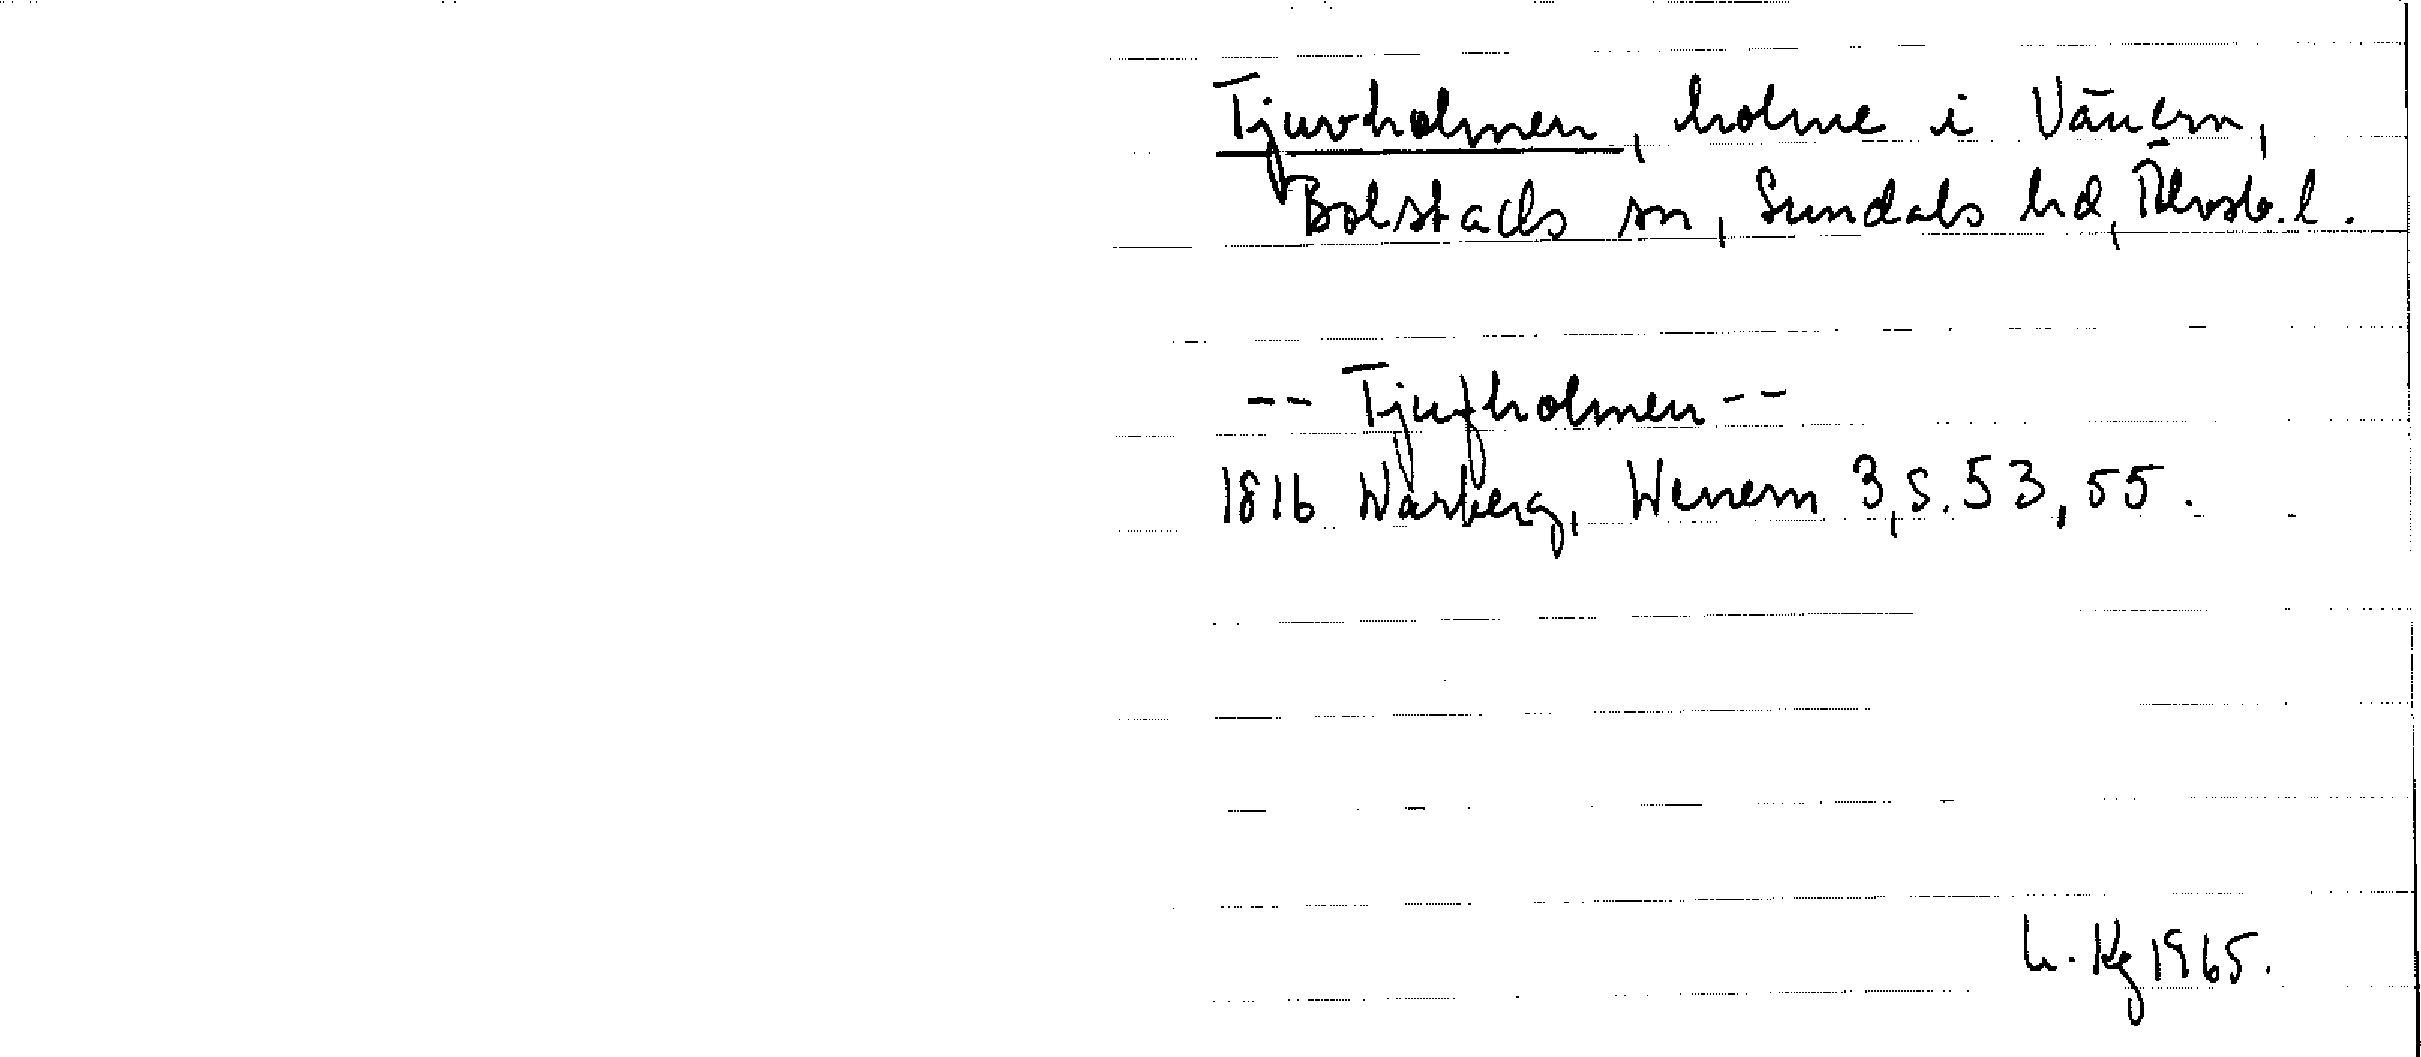 Tjuvholmen, holme i Vänern,
Bolstads sn, Sundals hd, Älvsb. l.
-- Tjufholmen --
1816 Warberg, Wenern 3, s. 53, 55.
L. Kg 1965.